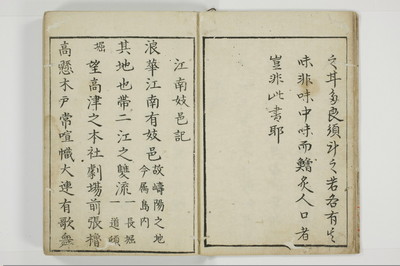 之耳多良須斗之若名有
味非味中味而鱠炙人口者
豈非此書耶
江南妓邑記
浪華江南有妓邑故嶹陽之地今属島内
其地也帯二江之雙流一長堀一道頓
堀望高津之本社劇場前張櫓
高懸木戸常喧幟大連有歌舞